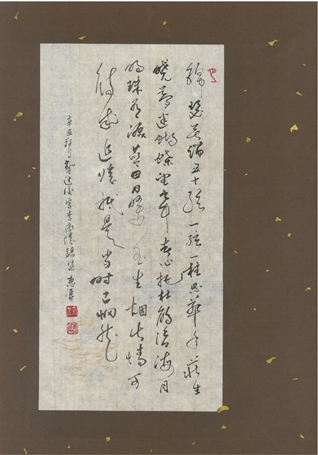 錦瑟無端五十弦一弦一柱思華年莊生
曉夢迷蝴蝶望帝春心托杜鵑滄海月
明珠有淚藍田日暖玉生烟此情可
待成追憶祇是當時已惘然
辛丑 書李商隱詩